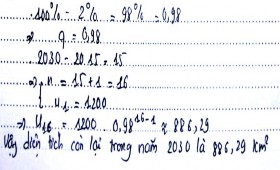 100% - 2% = 98% = 0,98
⇒ q = 0,98
2030 - 2015 = 15
⇒ { n = 15 + 1 = 16
u₁ = 1200
⇒ u₁₆ = 1200 . 0,98¹⁶⁻¹ ≈ 886,29
Vậy diện tích còn lại trong năm 2030 là 886,29 km²